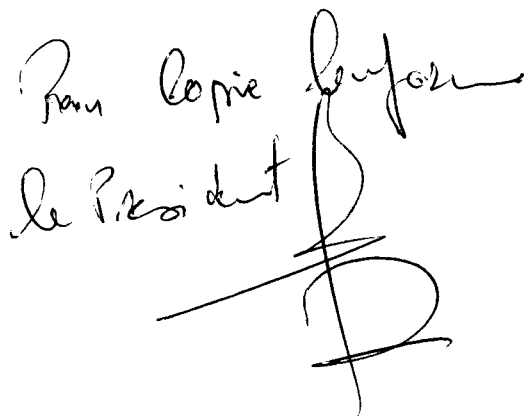 Pour Copie Conforme
le Président